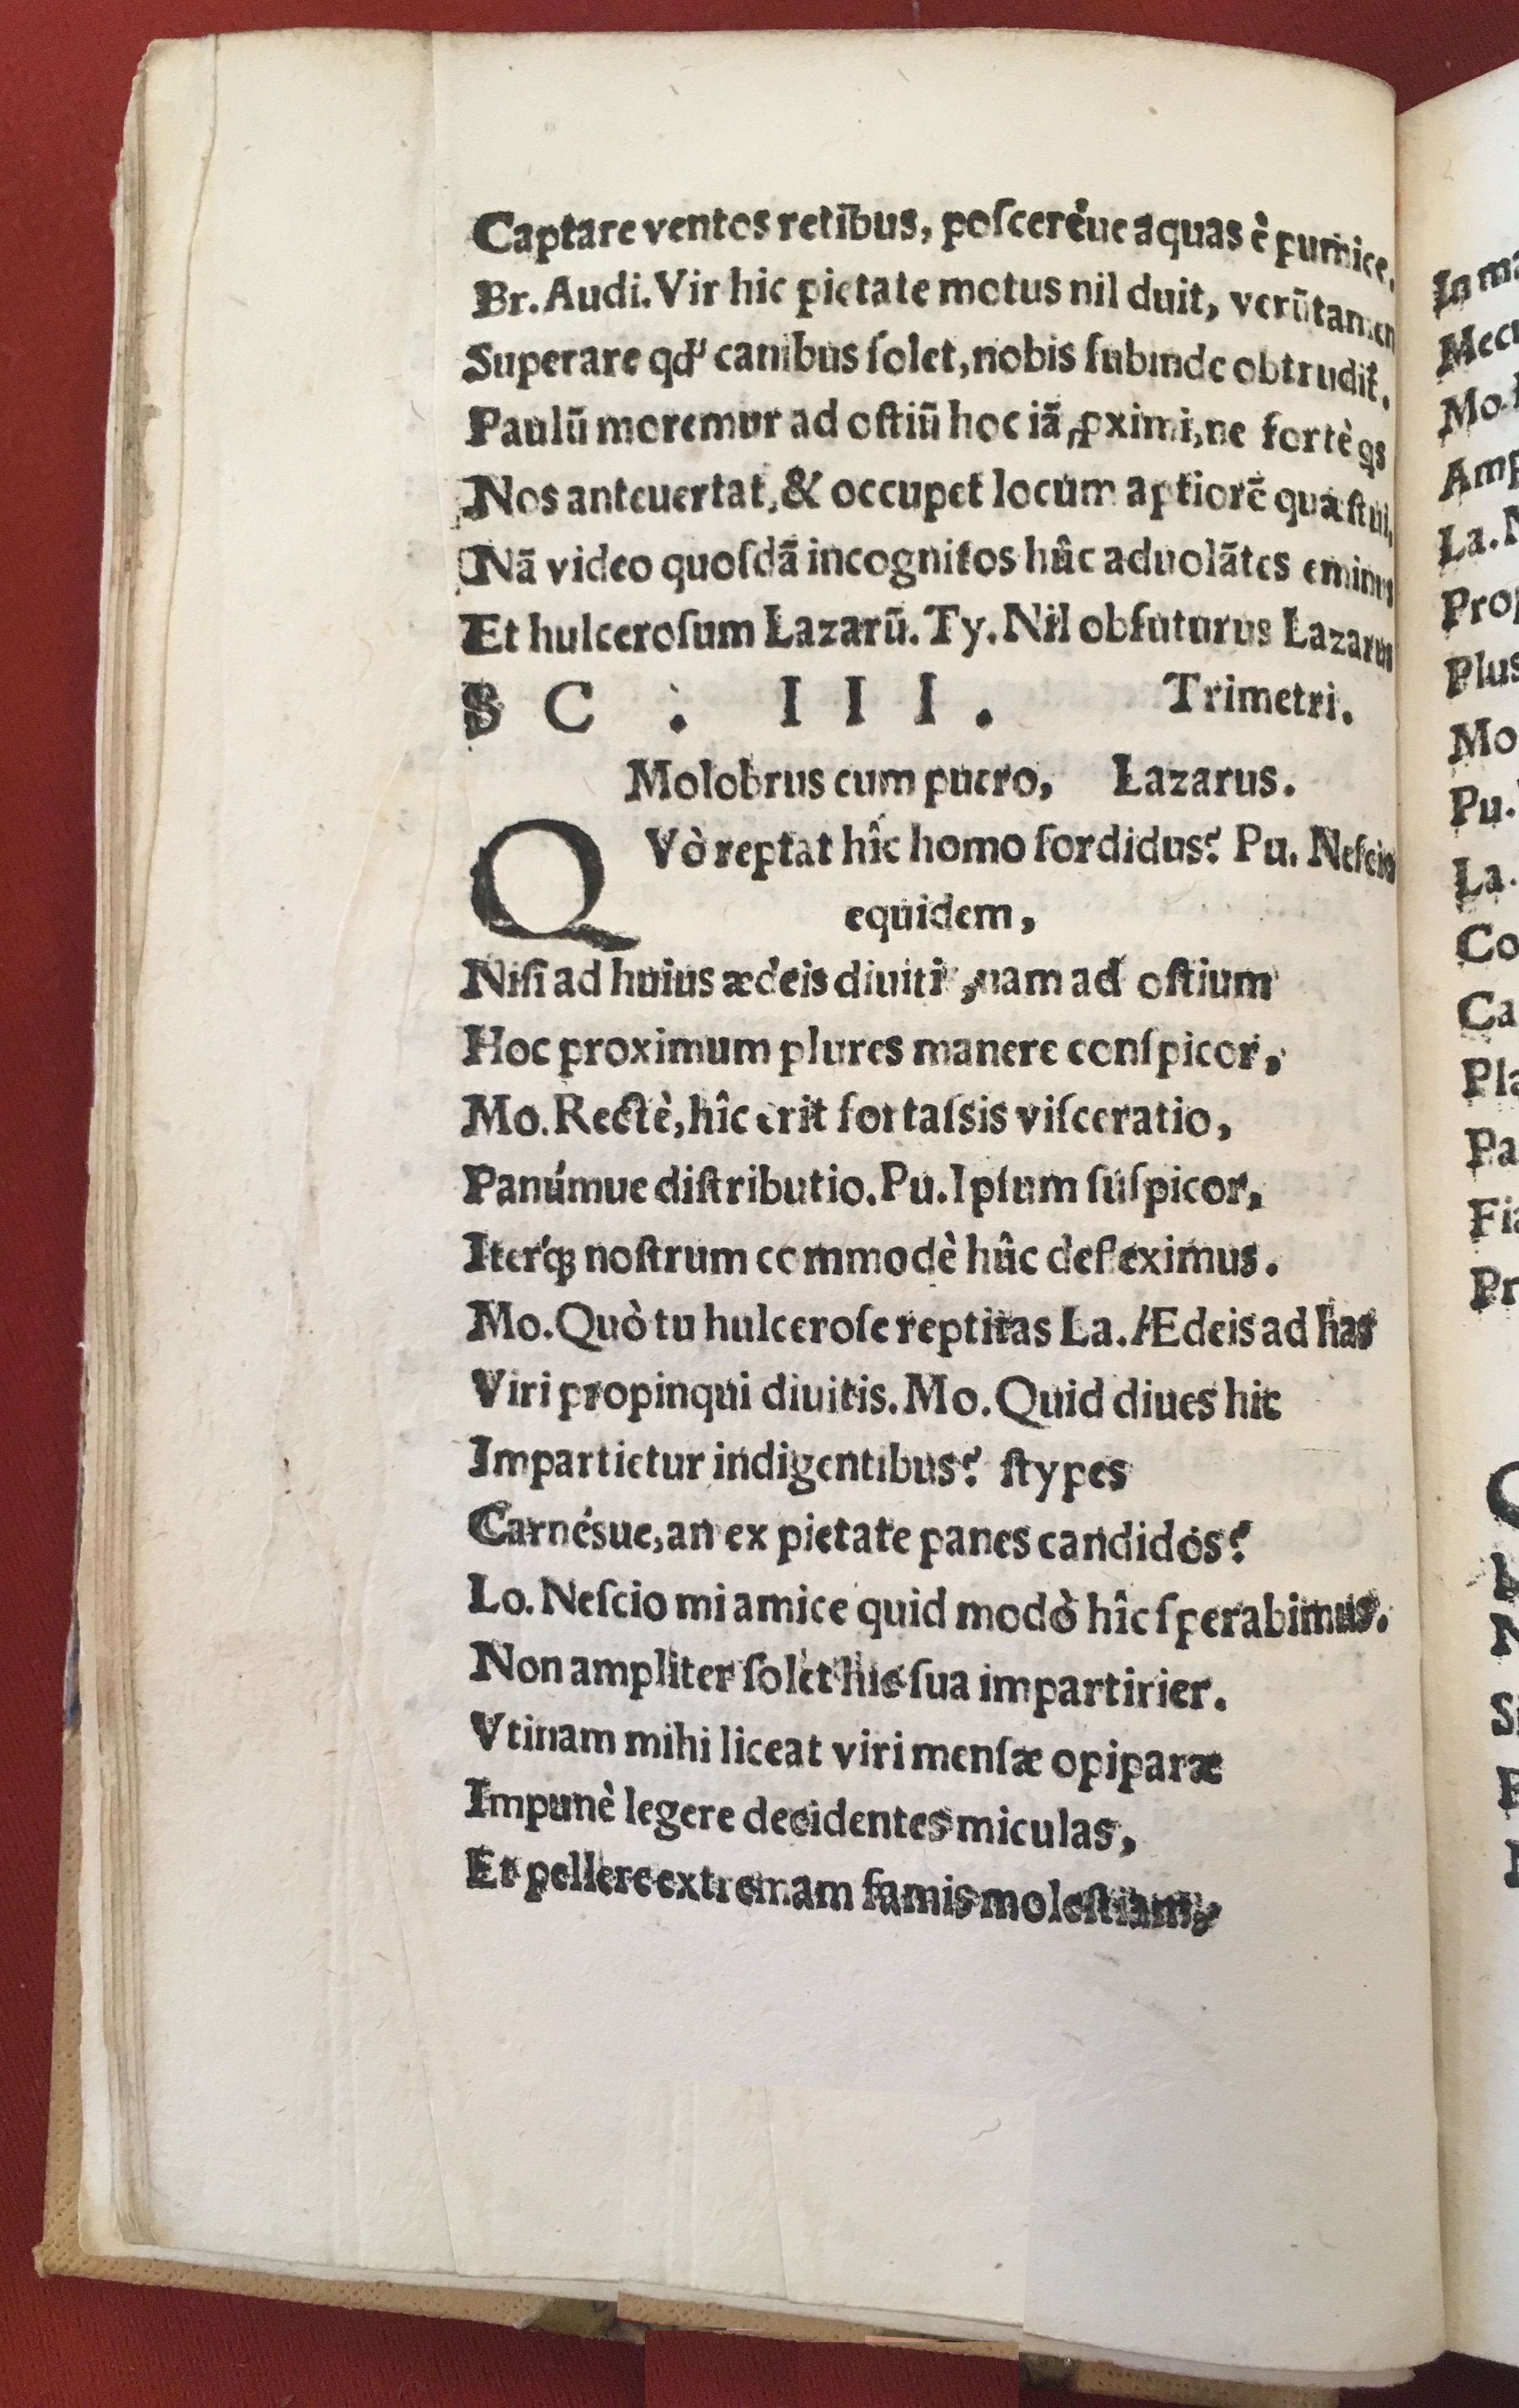 Captare ventos retibus, poſceréue aquas è pumice,
Br. Audi. Vir hic pietate motus nil duit, verūtamen
Superare qd' canibus ſolet, nobis ſubinde obtrudit.
Paulū moremur ad oſtiū hoc iā ꝓximi, ne fortè qs
Nos anteuertat, & occupet locum aptiorē quæſtui,
Nā video quoſdā incognitos hûc aduolātes eminus
Et hulceroſum Lazarū. Ty. Nil obfuturus Lazarus
SC. III. Trimetri.
Molobrus cum puero, Lazarus.
QVò reptat hîc homo ſordidus? Pu. Neſcio
equidem,
Niſi ad huius ædeis diuiti, nam ad oſtium
Hoc proximum plures manere conſpicor,
Mo. Rectè, hîc erit fortaſsis viſceratio,
Panúmue diſtributio. Pu. Ipſum ſuſpicor,
Iterq́ꝫ noſtrum commodè hûc defleximus.
Mo. Quò tu hulceroſe reptitas La. Ædeis ad has
Viri propinqui diuitis. Mo. Quid diues hic
Impartietur indigentibus? ſtypes
Carnésue, an ex pietate panes candidos?
Lo. Neſcio mi amice quid modò hîc ſperabimus.
Non ampliter ſolet hic ſua impartirier.
Vtinam mihi liceat viri menſæ opiparæ
Impunè legere decidentes miculas,
Et pellere extremam famis moleſtiam,
In
Mo.
La.
Mo
Pu.
La.
Co
Ca
Pla
Pa
Fia
Pr